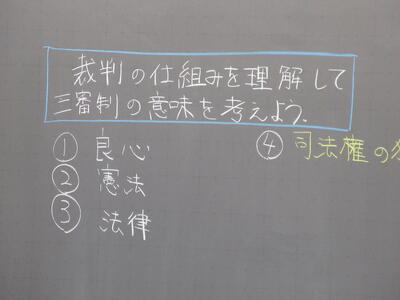 裁判の仕組みを理解して
三審制の意味を考えよう.
① 良心
② 憲法
③ 法律
④ 司法権の